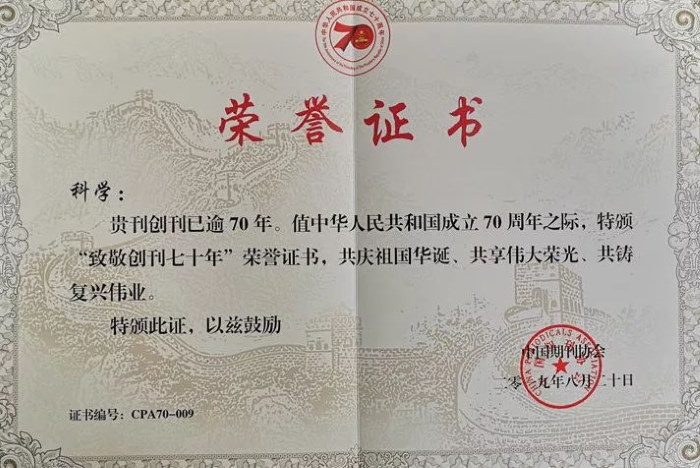 中华人民共和国成立七十周年
70
荣誉证书
科学：
贵刊创刊已逾 70 年。值中华人民共和国成立 70 周年之际，特颁
“致敬创刊七十年”荣誉证书，共庆祖国华诞、共享伟大荣光、共铸
复兴伟业。
特颁此证，以兹鼓励
中国期刊协会
CHINA PERIODICALS ASSOCIATION
二〇一九年八月二十日
证书编号：CPA70-009